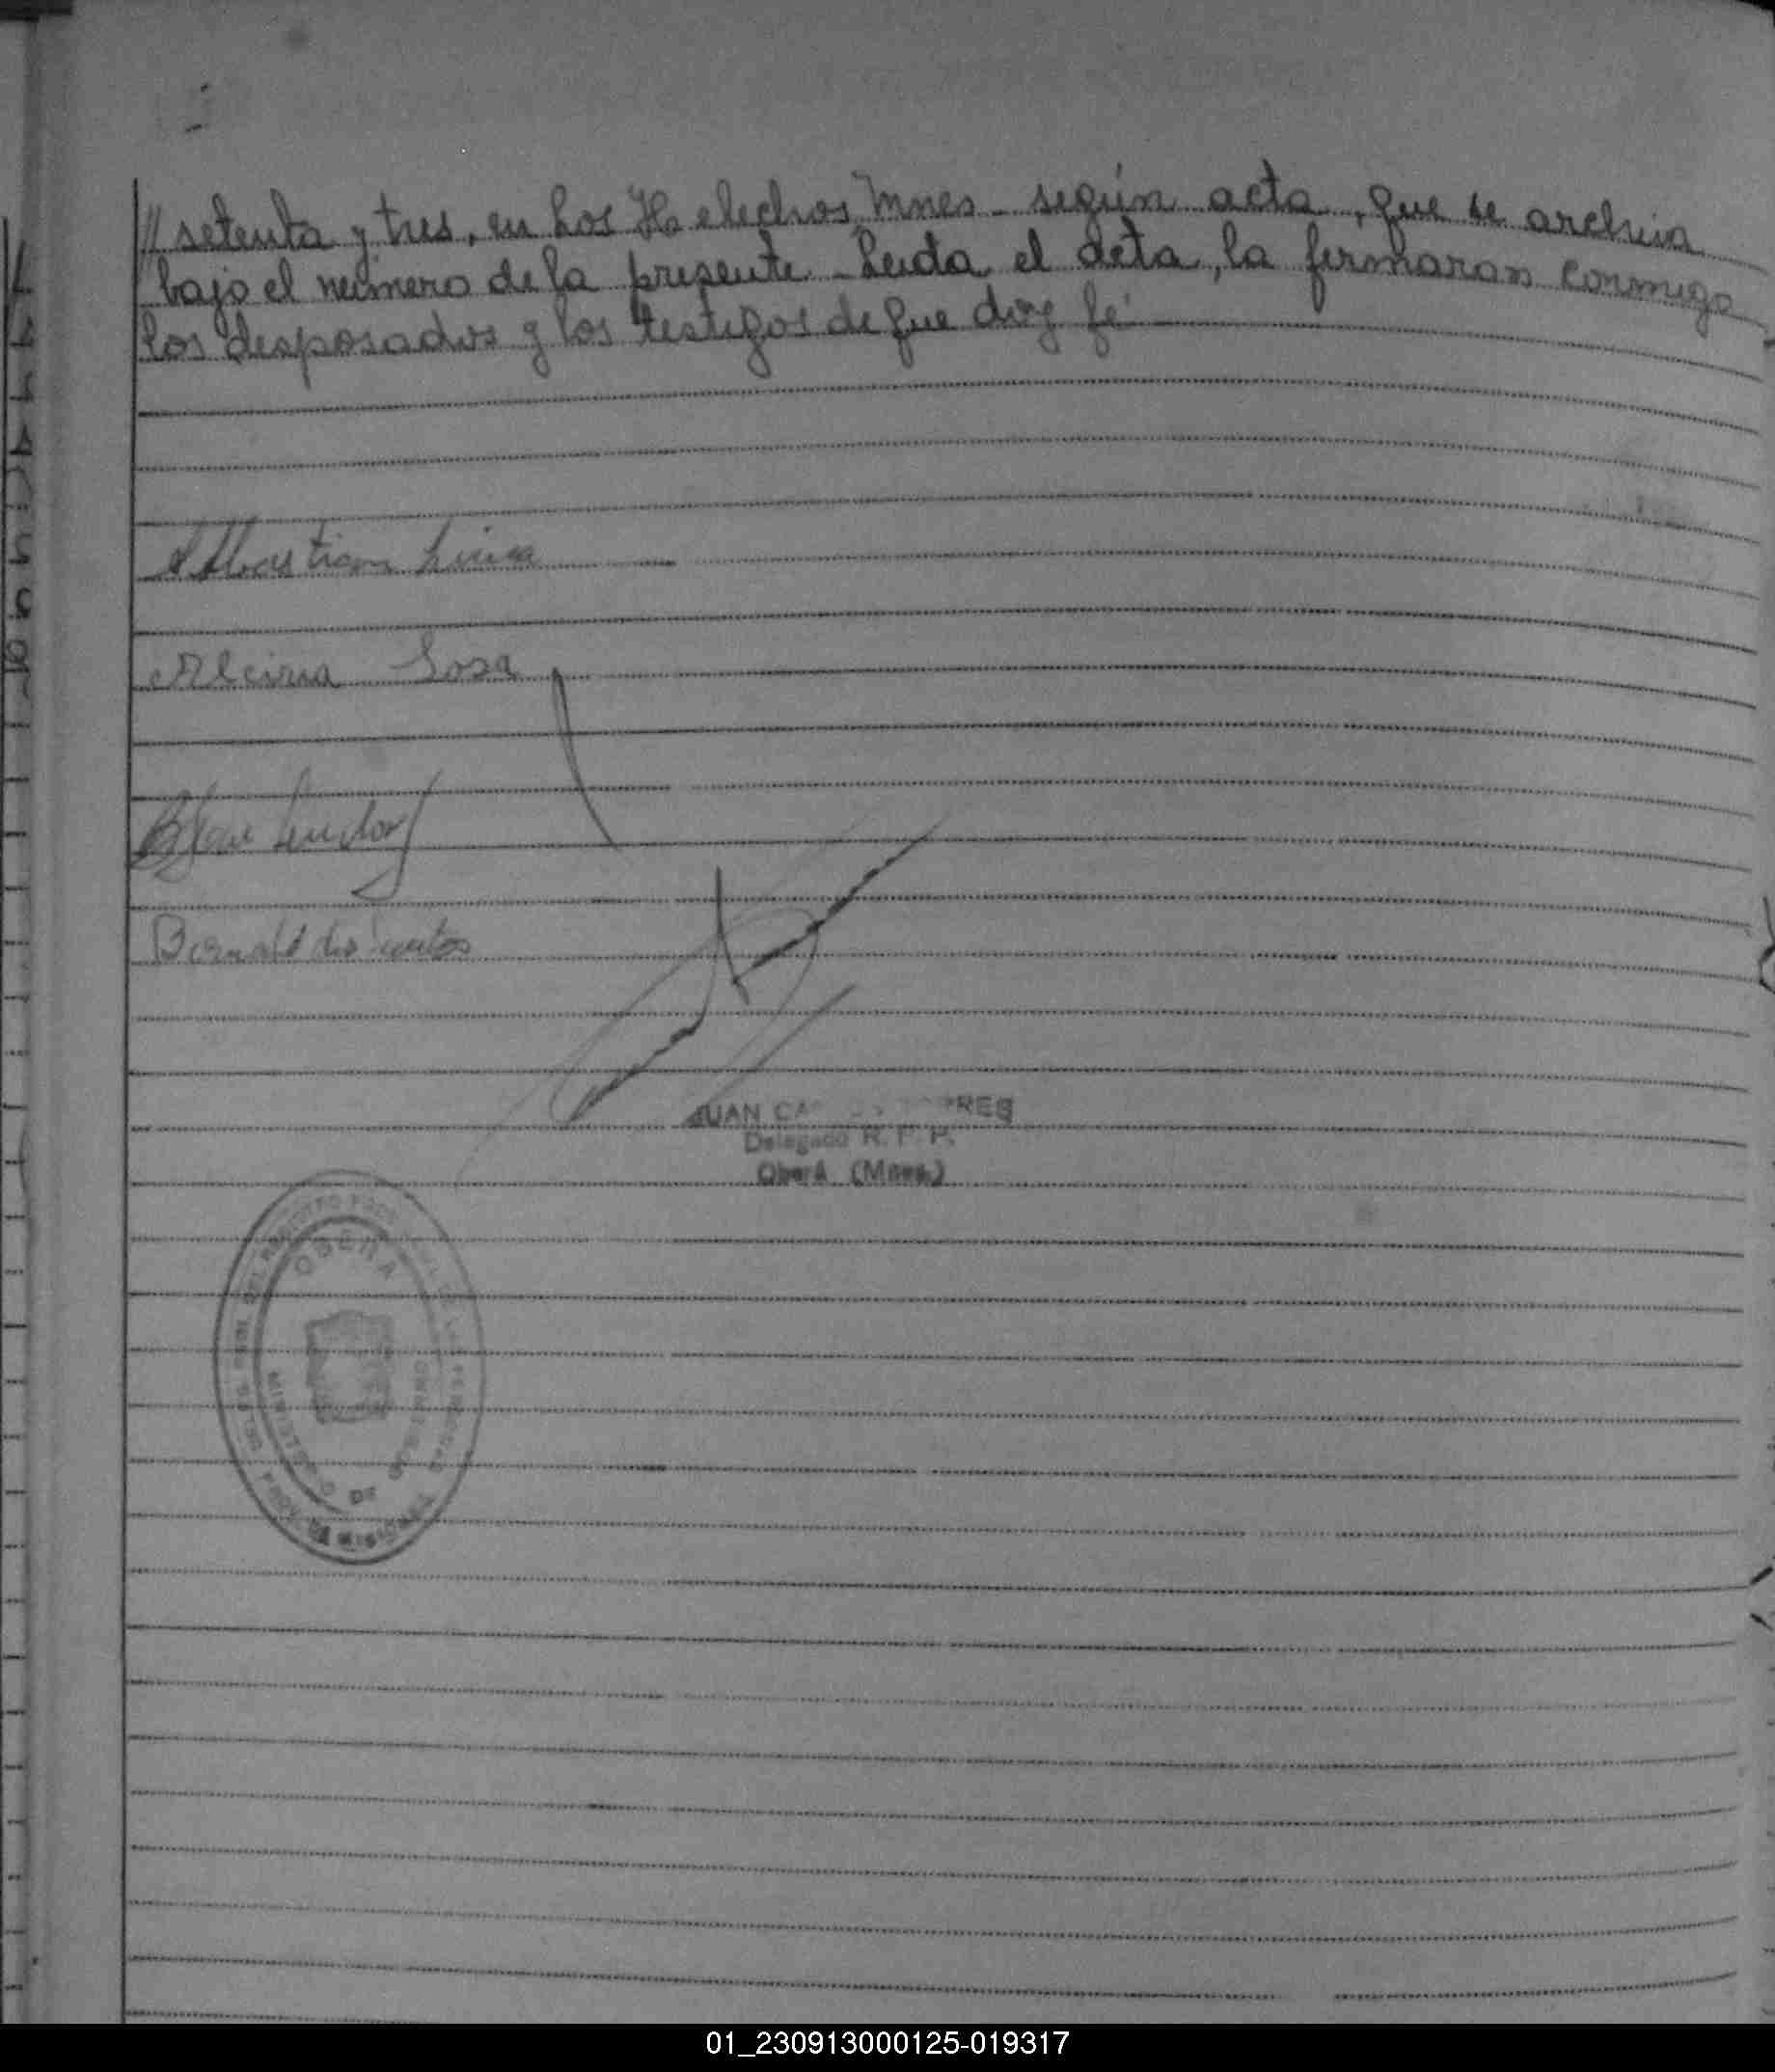 // setenta y tres, en Los Helechos, Mnes - según acta, que se archiva
bajo el número de la presente - Leída el acta, la firmaron conmigo
los desposados y los testigos de que doy fé -
Sebastian Lima
Alcira Sosa
Bernardo dos Santos
JUAN CA TORRES
Delegado R. P. P.
Oberá (Mnes.)
OBERA
MINISTERIO DE GOBIERNO
PROV. DE MISIONES
01_230913000125-019317